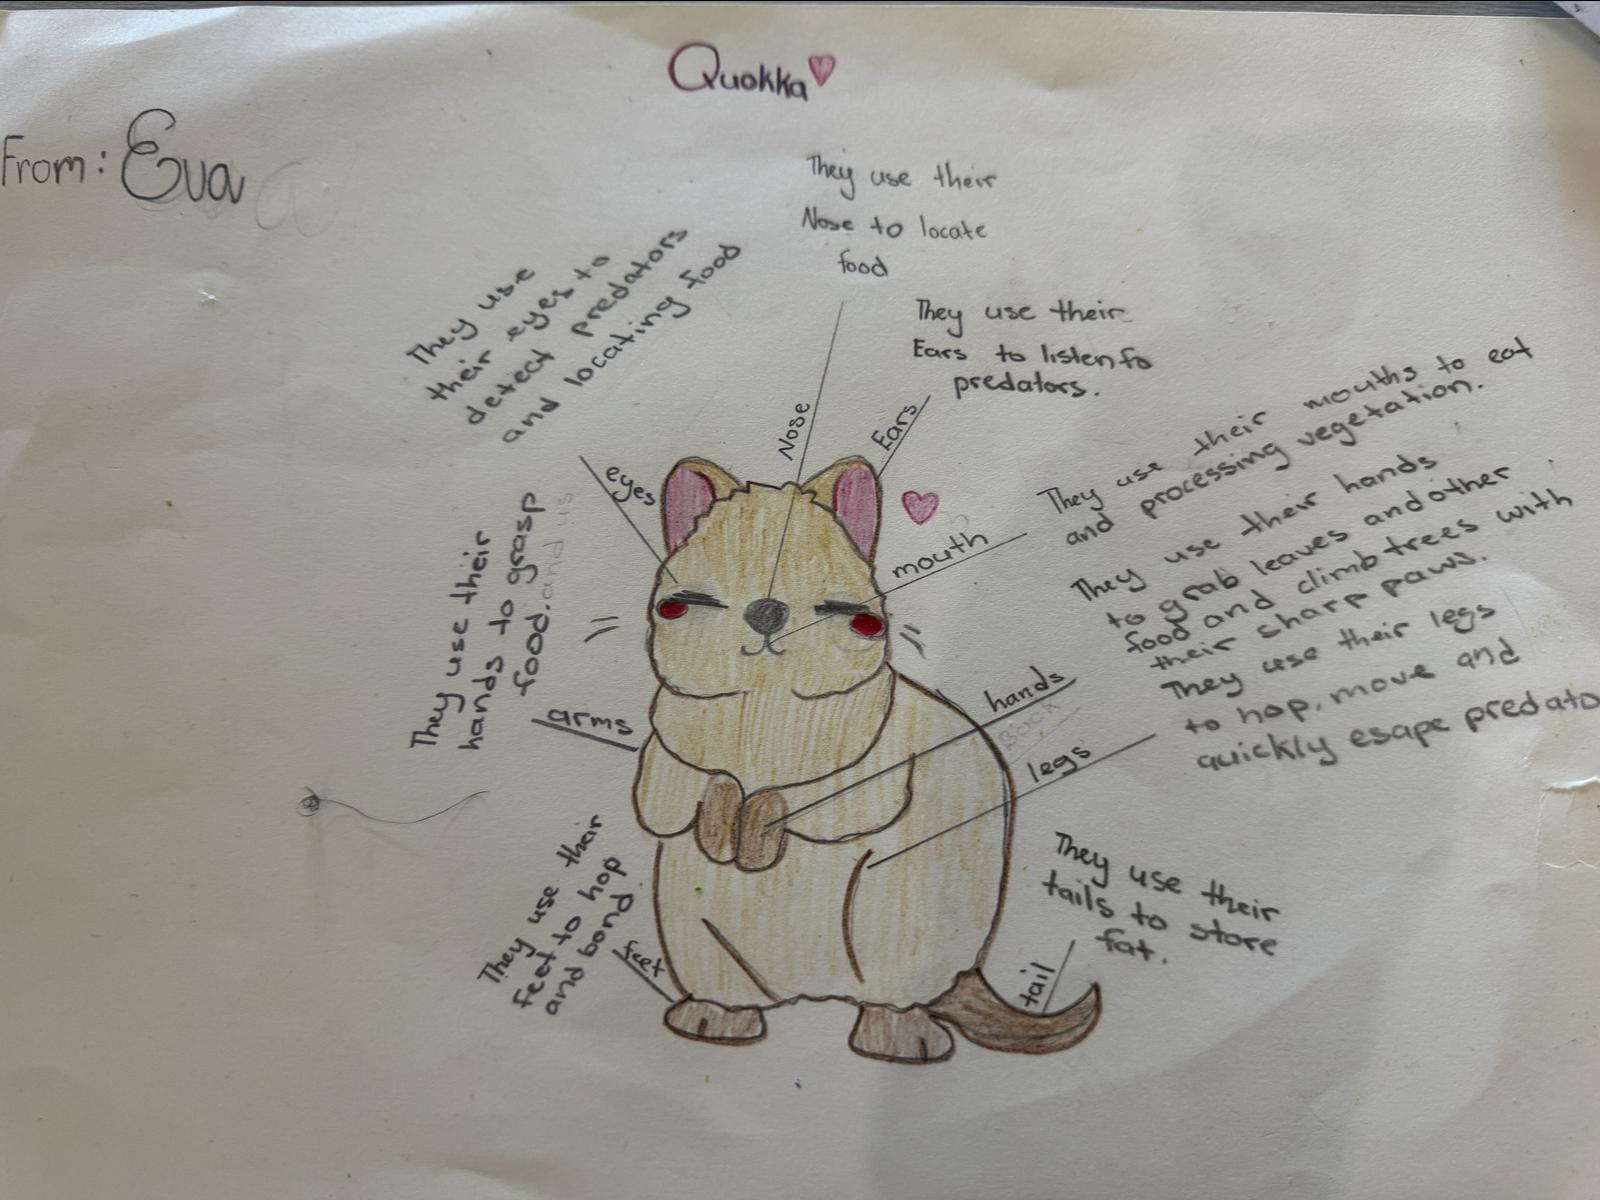 Quokka
From: Eva
They use their
Nose to locate
food
They use
their eyes to
detect predators
and locating food
They use their
Ears to listen fo
predators.
Nose
Ears
eyes
They use their mouths to eat
and processing vegetation.
mouth
They use their
hands to grasp
food. and us
They use their hands
to grab leaves and other
food and climb trees with
their sharp paws.
arms
hands
Book
They use their legs
to hop, move and
quickly esape predato
legs
They use their
feet to hop
and bond
feet
They use their
tails to store
fat.
tail